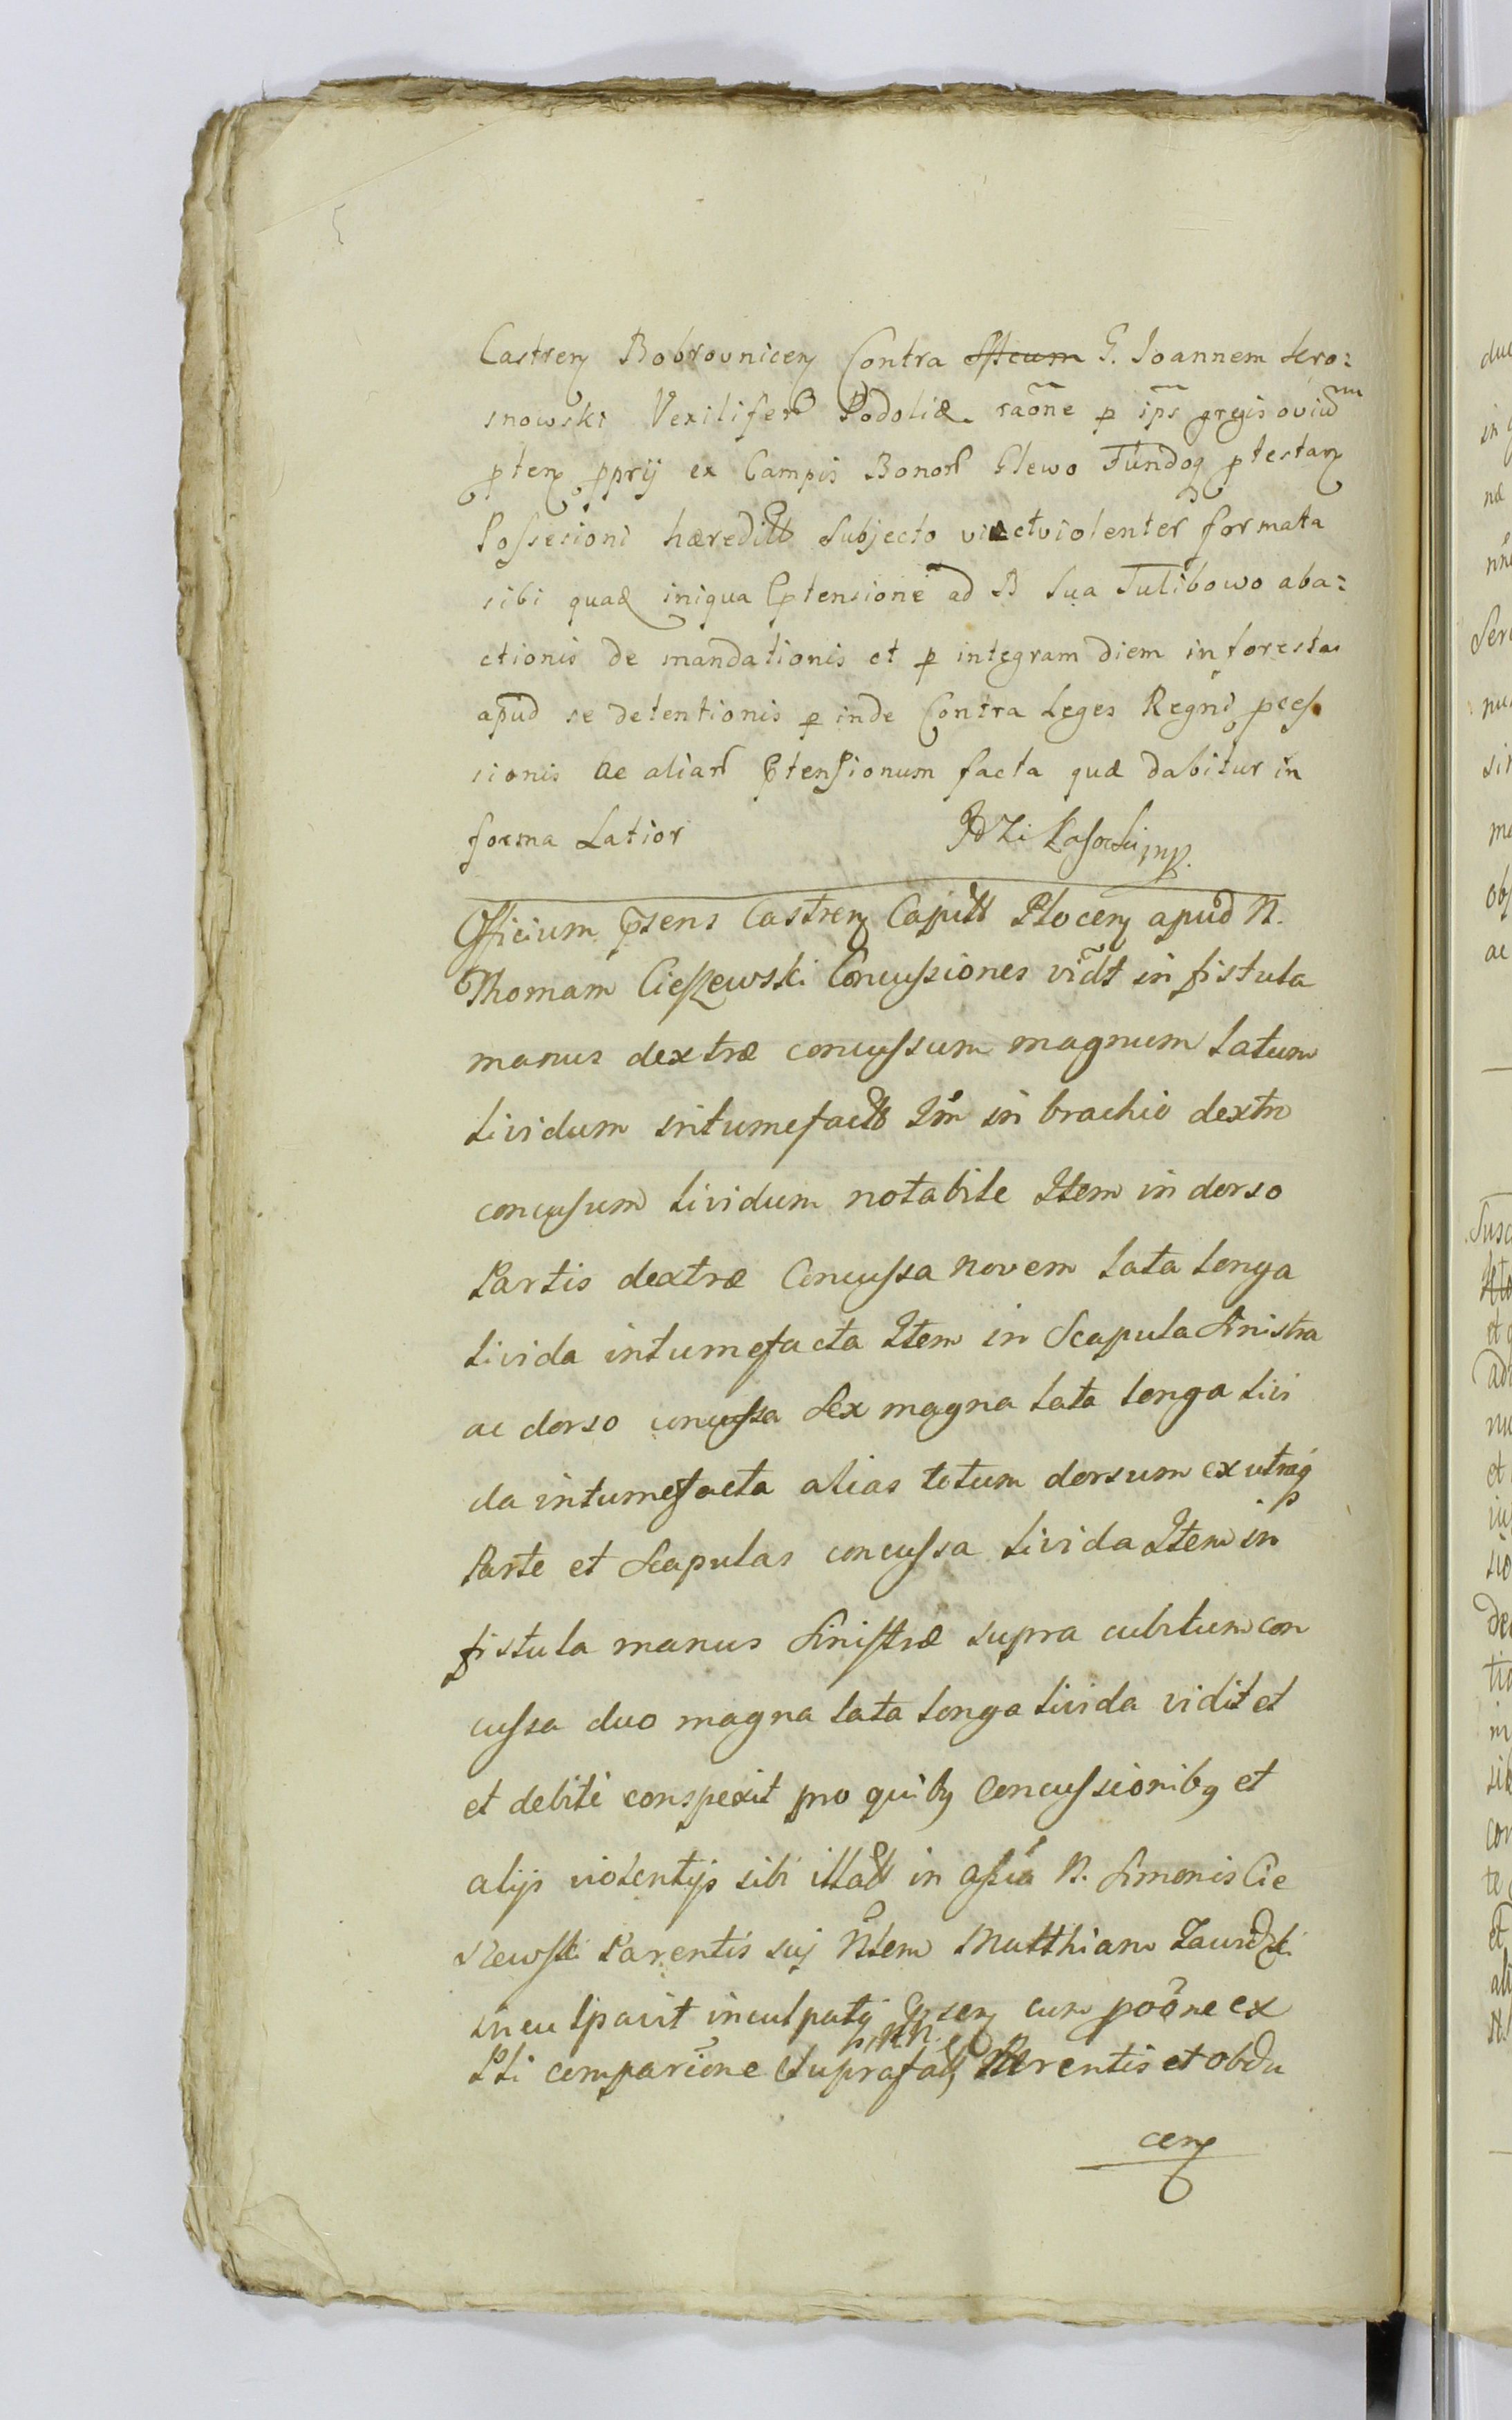 Castren Bobrovnicen Contra G. Joannem Kro:
snowski Vexilifer Podoliæ raõne p ips gregis oviũ
pten pprij ex Campis Bonor Glewo Fundoq ptestan
Possesioni hæreditt Subjecto vi et violenter formata
sibi quad iniqua Ptensione ad B Sua Tulibowo aba:
ctionis de mandationis et p integram diem in foresta
apud se detentionis p inde Contra Leges Regni pces
sionis Ac aliar Ptensionum facta quæ dabitur in
forma Latiori
Officium psens Castren Capitt Plocen apud N.
Thomam Cieszewski Concussiones vidt in fistula
manus dextræ concussum magnum latum
lividum intumefactt Im in brachio dextro
concusum lividum notabile Item in dorso
Partis dextræ Concussa novem lata longa
livida intumefacta Item in Scapula Sinistra
ac dorso concussa Sex magna lata longa livi
da intumefacta alias totum dorsum ex utraq
Parte et Scapulas concussa livida Item in
fistula manus Sinistræ supra cubitum con
cussa duo magna lata longa livida vidit et
et debite conspexit pro quibq Concussionibq et
alijs violentijs sibi illatt in assia N. Simonis Cie
szewski Parentis sui Ntem Matthiam
inculpavit inculpatq psen cum põone ex
Pti comparione Suprafatt Parentis et obdu
cen